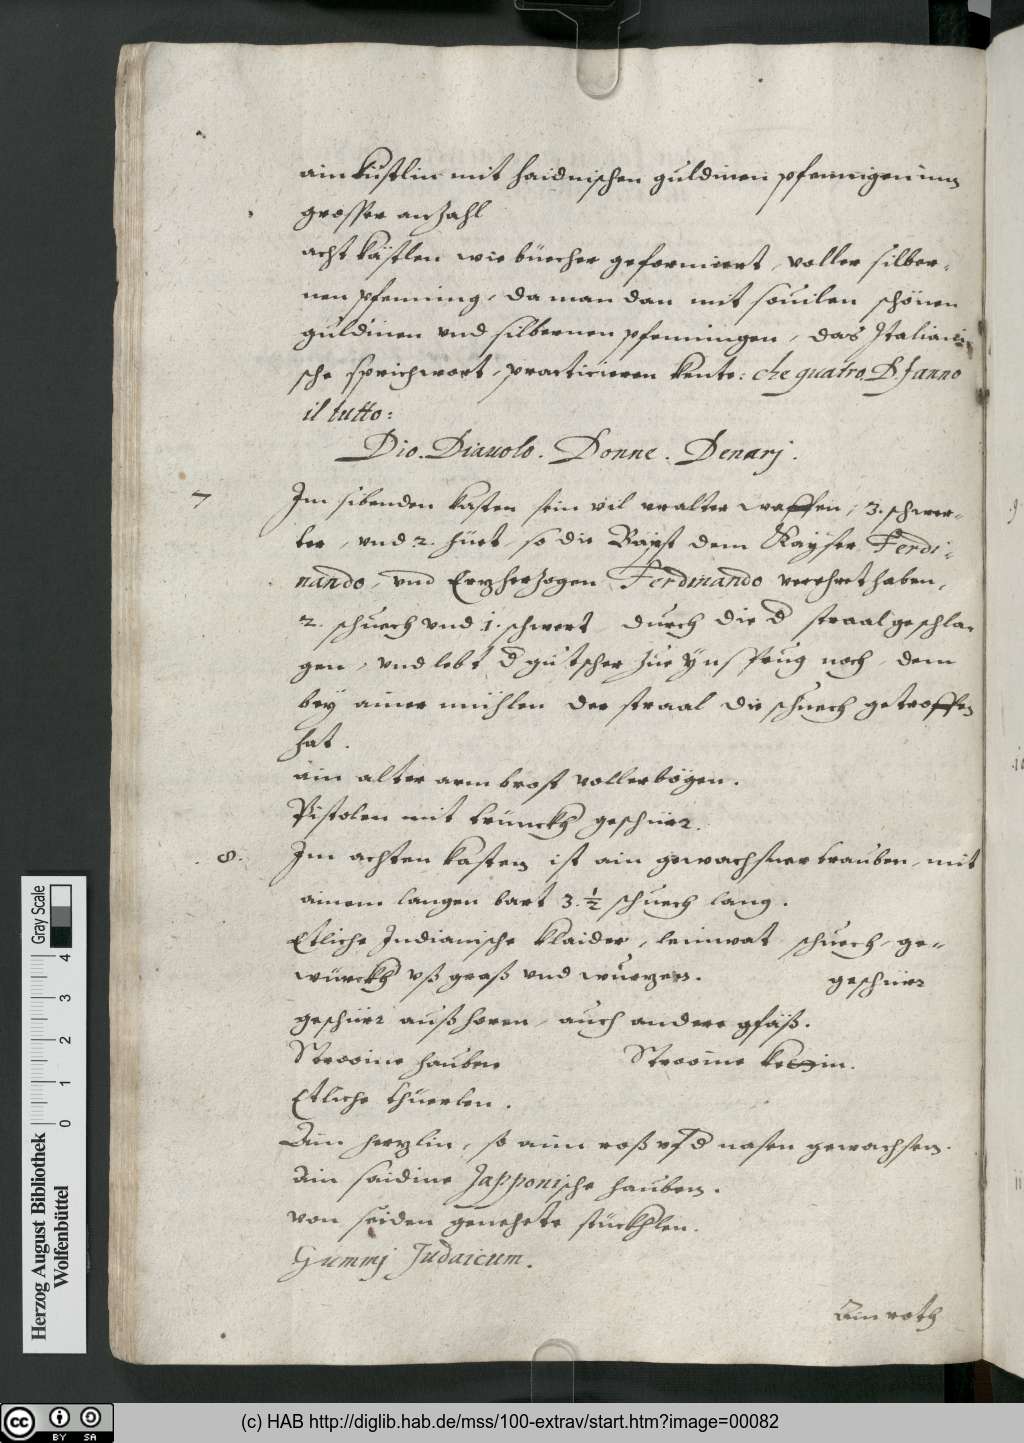 ain Küstlin mit haidnischen guldinen pfennigen inn
grosser anzahl
acht kästlen wie büecher geformiert, voller silber-
nen pfenning, da man dan mit souilen schönen
guldinen vnd silbernen pfenningen, das Italiani
sche sprichwort, practicieren kente: che quatro D. fanno
il tutto:
Dio. Diauolo. Donne. Denarj.
7 Im sibenden kasten sein vil vralter waffen, 3. schwer-
ter, vnd 2. hüet, so die Bäpst dem Kayser Ferdi-
nando, vnd Erzherzogen Ferdinando verehret haben,
2. schuech vnd 1. schwert durch die d straal geschla-
gen, vnd lebt d gutscher zue Ynsprug noch, dem
bey ainer mühlen der straal die schuech getroffen
hat.
ain alter armbrost voller bögen.
Pistolen mit trünckh geschürr.
8. Im achten kasten ist ain gewachsner trauben, mit
ainem langen bart 3. ½ schuech lang.
Etliche Indianische klaider, leinwat schuech, ge-
würckh vß graß vnd wurzen. geschürr
geschürr auß horen, auch andere gfäß.
Strooine hauben Strooine
Etliche thuerlen.
Ain herzlin, so aim roß vf d nasen gewachsen.
Ain saidine Japponische hauben.
von seiden genehete stückhlen.
Gummj Judaicum.
Ain roth
Herzog August Bibliothek
Wolfenbüttel
0 1 2 3 4
Gray Scale
cc BY SA
(c) HAB http://diglib.hab.de/mss/100-extrav/start.htm?image=00082